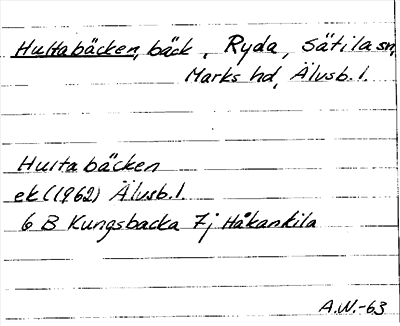 Hultabäcken, bäck, Ryda, Sätila sn,
Marks hd, Älvsb. l.
Hultabäcken
ek (1962) Älvsb. l.
6 B Kungsbacka 7j Håkankila
A.W.-63